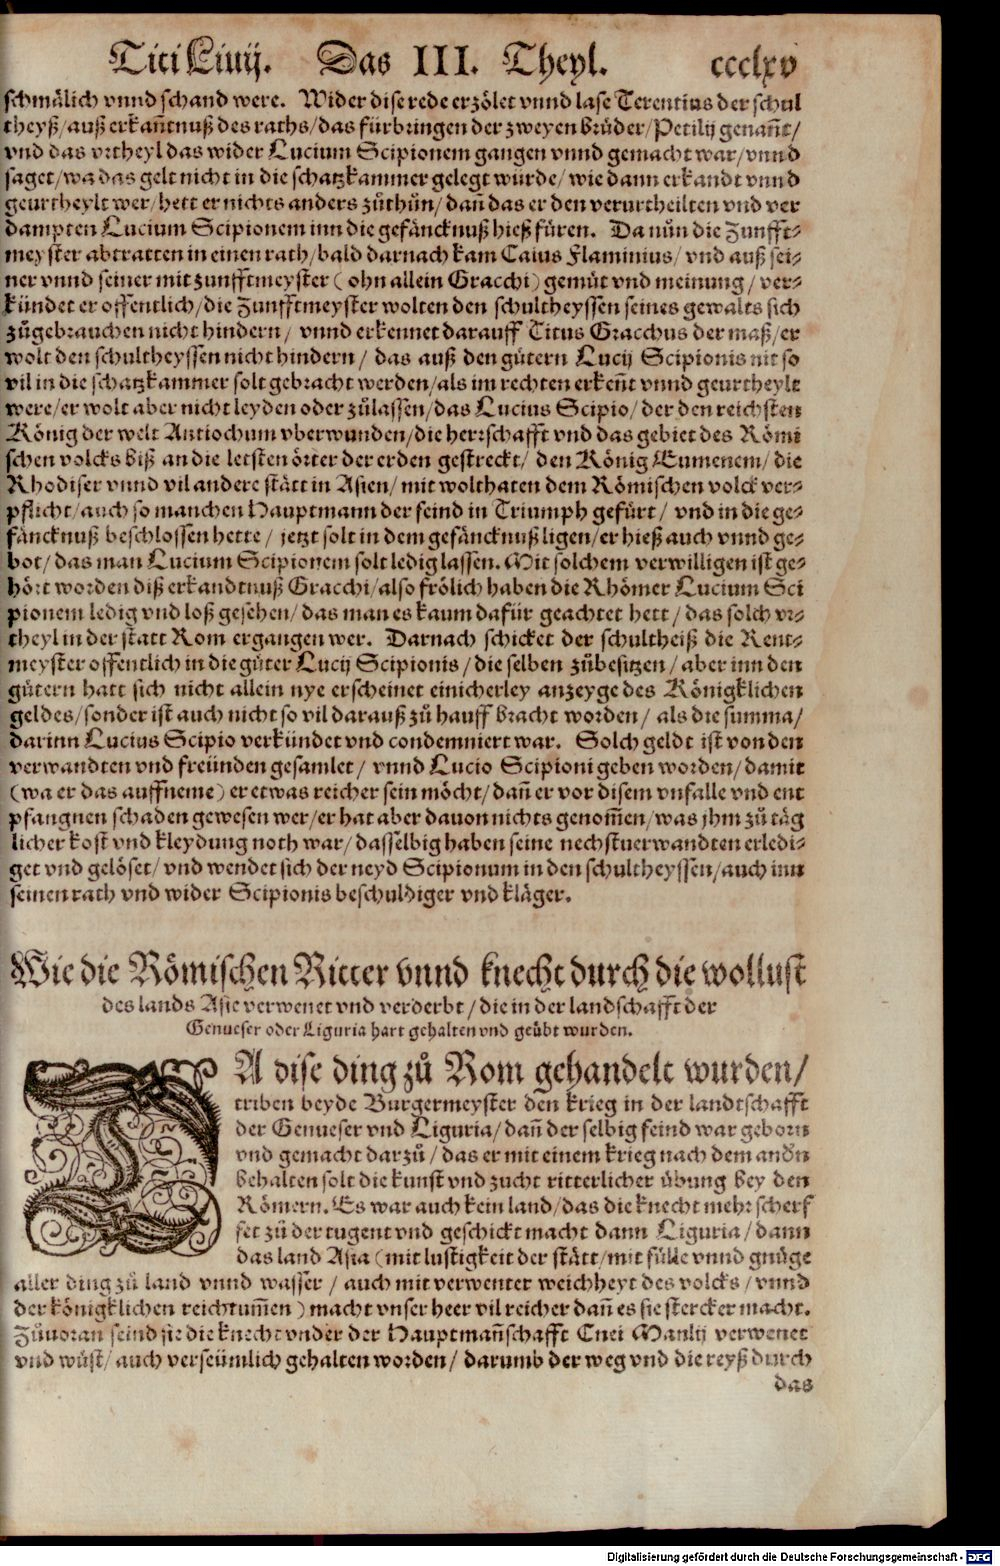 Titi Liuij. Das III. Theyl. ccclxv
schmålich vnnd schand were. Wider dise rede erzölet vnnd lase Terentius der schul
theyß/auß erkañtnuß des raths/das fürbringen der zweyen brüder/Petilij genañt/
vnd das vrtheyl das wider Lucium Scipionem gangen vnnd gemacht war/vnnd
saget/wa das gelt nicht in die schatzkammer gelegt würde/wie dann erkandt vnnd
geurtheylt wer/hett er nichts anders zůthůn/dañ das er den verurtheilten vnd ver
dampten Lucium Scipionem inn die gefäncknuß hieß füren. Da nůn die Zunfft⸗
meyster abtratten in einen rath/bald darnach kam Caius Flaminius/vnd auß sei⸗
ner vnnd seiner mit zunfftmeyster (ohn allein Gracchi) gemüt vnd meinung/ver⸗
kündet er offentlich/die Zunfftmeyster wolten den schultheyssen seines gewalts sich
zůgebrauchen nicht hindern/vnnd erkennet darauff Titus Gracchus der maß/er
wolt den schultheyssen nicht hindern/das auß den gütern Lucij Scipionis nit so
vil in die schatzkammer solt gebracht werden/als im rechten erkeñt vnnd geurtheylt
were/er wolt aber nicht leyden oder zůlassen/das Lucius Scipio/der den reichsten
König der welt Antiochum vberwunden/die herrschafft vnd das gebiet des Römi
schen volcks biß an die letsten örter der erden gestreckt/den König Eumenem/die
Rhodiser vnnd vil andere stätt in Asien/mit wolthaten dem Römischen volck ver⸗
pflicht/auch so manchen Hauptmann der feind in Triumph gefürt/vnd in die ge⸗
fäncknuß beschlossen hette/jetzt solt in dem gefäncknuß ligen/er hieß auch vnnd ge⸗
bot/das man Lucium Scipionem solt ledig lassen. Mit solchem verwilligen ist ge⸗
hört worden diß erkandtnuß Gracchi/also frölich haben die Rhömer Lucium Sci
pionem ledig vnd loß gesehen/das man es kaum dafür geachtet hett/das solch vr⸗
theyl in der statt Rom ergangen wer. Darnach schicket der schultheiß die Rent⸗
meyster offentlich in die güter Lucij Scipionis/die selben zůbesitzen/aber inn den
gütern hatt sich nicht allein nye erscheinet einicherley anzeyge des Königklichen
geldes/sonder ist auch nicht so vil darauß zů hauff bracht worden/als die summa/
darinn Lucius Scipio verkündet vnd condemniert war. Solch geldt ist von den
verwandten vnd freünden gesamlet/vnnd Lucio Scipioni geben worden/damit
(wa er das auffneme) er etwas reicher sein möcht/dañ er vor disem vnfalle vnd ent
pfangnen schaden gewesen wer/er hat aber dauon nichts genom̃en/was jhm zů täg
licher kost vnd kleydung noth war/dasselbig haben seine nechstuerwandten erledi⸗
get vnd gelöset/vnd wendet sich der neyd Scipionum in den schultheyssen/auch inn
seinen rath vnd wider Scipionis beschuldiger vnd kläger.
Wie die Römischen Ritter vnnd knecht durch die wollust
des lands Asie verwenet vnd verderbt/die in der landschafft der
Genueser oder Liguria hart gehalten vnd geübt wurden.
DA dise ding zů Rom gehandelt wurden/
triben beyde Burgermeyster den krieg in der landtschafft
der Genueser vnd Liguria/dañ der selbig feind war geborn
vnd gemacht darzů/das er mit einem krieg nach dem andn
behalten solt die kunst vnd zucht ritterlicher übung bey den
Römern. Es war auch kein land/das die knecht mehr scherf
fet zů der tugent vnd geschickt macht dann Liguria/dann
das land Asia (mit lustigkeit der stätt/mit fülle vnnd gnüge
aller ding zů land vnnd wasser/auch mit verwenter weichheyt des volcks/vnnd
der königklichen reichtum̃en) macht vnser heer vil reicher dañ es sie stercker macht.
Zůuoran seind sie die knecht vnder der Hauptmañschafft Cnei Manlij verwenet
vnd wüst/auch verseümlich gehalten worden/darumb der weg vnd die reyß durch
das
Digitalisierung gefördert durch die Deutsche Forschungsgemeinschaft - DFG